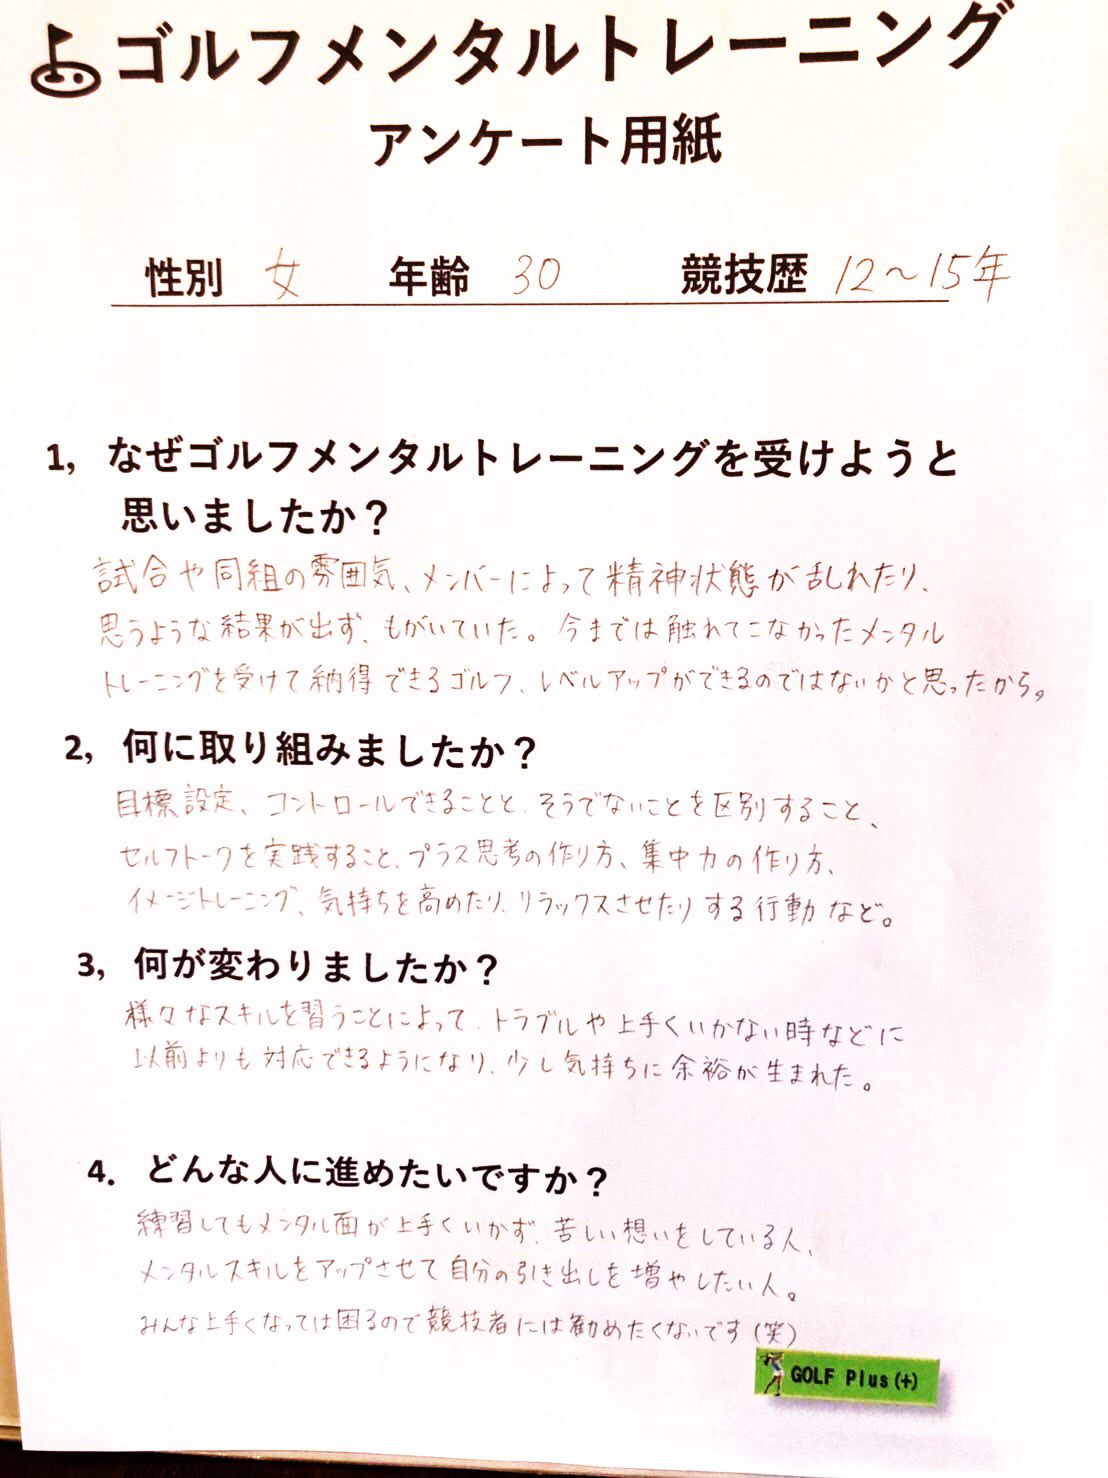 ゴルフメンタルトレーニング
アンケート用紙
性別 女 年齢 30 競技歴 12～15年
1, なぜゴルフメンタルトレーニングを受けようと
思いましたか？
試合や同組の雰囲気、メンバーによって精神状態が乱れたり、
思うような結果が出ず、もがいていた。今までは触れてこなかったメンタル
トレーニングを受けて納得できるゴルフ、レベルアップができるのではないかと思ったから。
2, 何に取り組みましたか？
目標設定、コントロールできることと、そうでないことを区別すること、
セルフトークを実践すること、プラス思考の作り方、集中力の作り方、
イメージトレーニング、気持ちを高めたり、リラックスさせたりする行動など。
3, 何が変わりましたか？
様々なスキルを習うことによって、トラブルや上手くいかない時などに
以前よりも対応できるようになり、少し気持ちに余裕が生まれた。
4. どんな人に進めたいですか？
練習してもメンタル面が上手くいかず、苦しい想いをしている人、
メンタルスキルをアップさせて自分の引き出しを増やしたい人。
みんな上手くなっては困るので競技者には勧めたくないです（笑）
GOLF Plus(+)